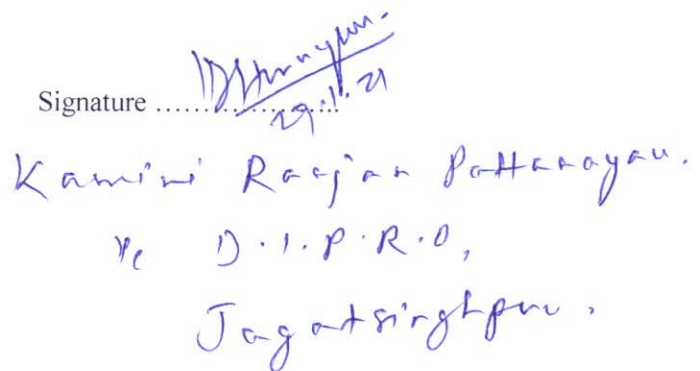 Signature ..................
29.1.21
Kamini Ranjan Pattanayak.
D.I.P.R.O,
Jagatsinghpur.